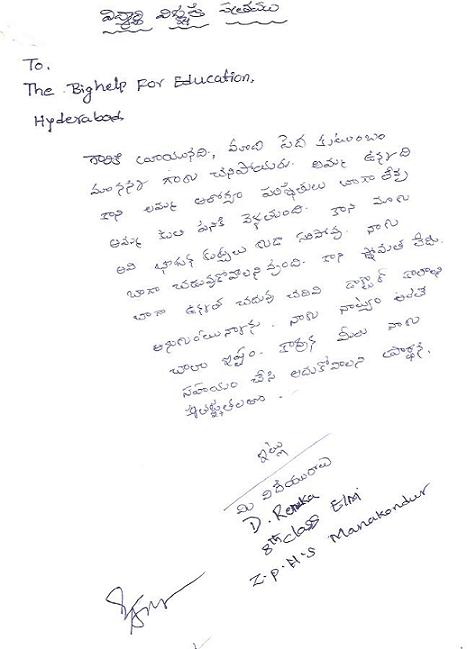 విద్యార్థి విజ్ఞప్తి పత్రము
To.
The Bighelp For Education,
Hyderabad.
గారికి వ్రాయునది, మాది పేద కుటుంబం
మా నాన్న గారు చనిపోయారు. అమ్మ ఉన్నది
కాని అమ్మ ఆరోగ్యం పరిస్థితులు బాగా లేవు
అమ్మ కూలి పనికి వెళ్తుంది. కాని మాకు
అవి ఖర్చులు కూడా సరిపోవు. నాకు
బాగా చదువుకోవాలని వుంది. కాని స్తోమత లేదు.
బాగా ఉన్నత చదువు చదివి డాక్టర్ కావాలని
అనుకుంటున్నాను. నాకు నాట్యం అంటే
చాలా ఇష్టం. కావున మీరు నాకు
సహాయం చేసి ఆదుకోవాలని ప్రార్థన.
కృతజ్ఞతలతో.
ఇట్లు
మీ విదేయురాలు
D. Renuka
8th class E/M
Z.P.H.S Manakondur